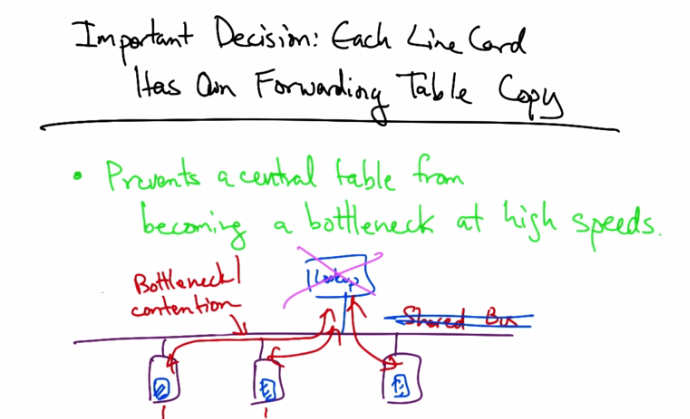 Important Decision: Each Line Card
Has Own Forwarding Table Copy
• Prevents a central table from
becoming a bottleneck at high speeds.
Lookup
Bottleneck/
contention
Shared Bus